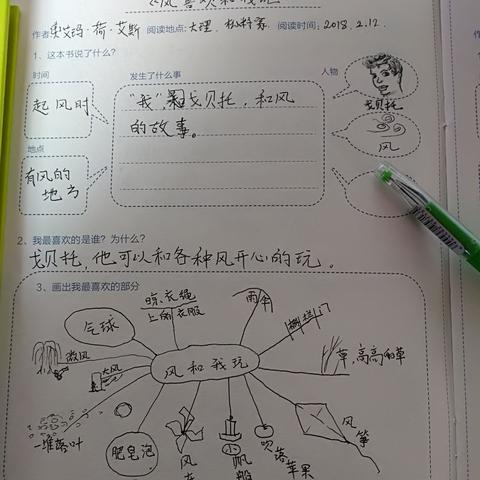 作者 奥艾玛·荷·艾斯 阅读地点:大理 阅读时间:2018.2.12.
1、这本书说了什么?
时间
发生了什么事
人物
起风时
“我”戈贝托,和风
的故事。
戈贝托
风
地点
有风的
地方
2、我最喜欢的是谁?为什么?
戈贝托,他可以和各种风开心的玩。
3、画出我最喜欢的部分
晾衣绳
上的衣服
雨伞
栅栏门
气球
微风
大风
风和我玩
草,高高的草
一堆落叶
肥皂泡
风车
小帆船
吹落苹果
风筝